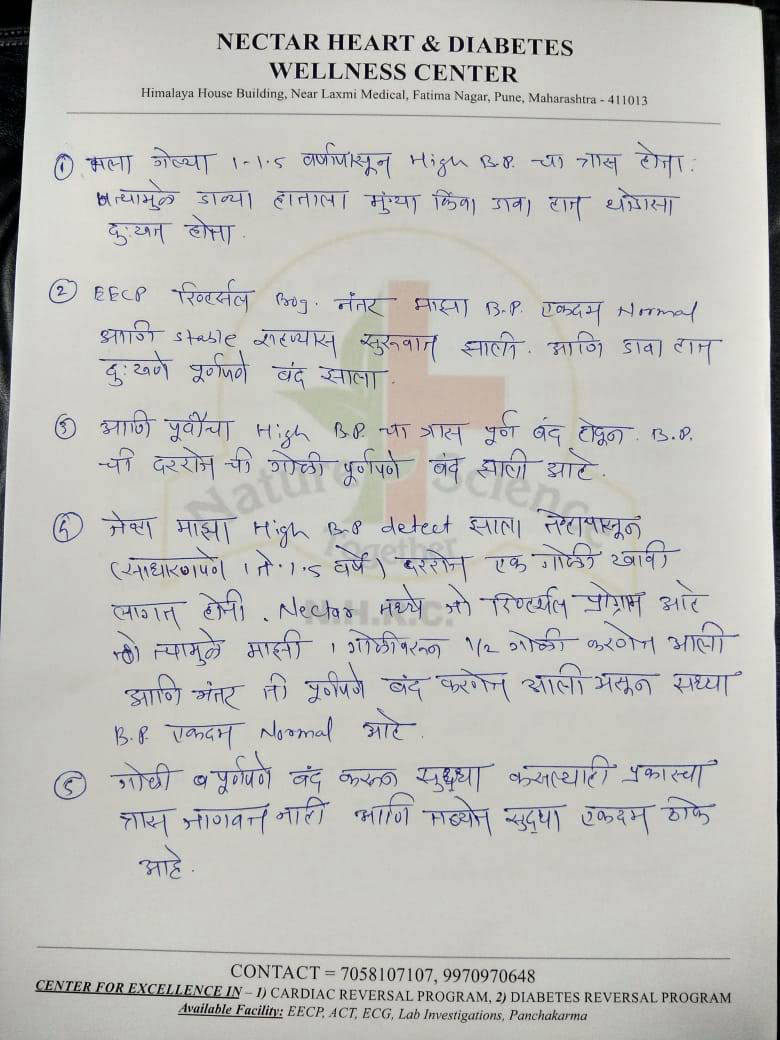 NECTAR HEART & DIABETES
WELLNESS CENTER
Himalaya House Building, Near Laxmi Medical, Fatima Nagar, Pune, Maharashtra - 411013
① मला गेल्या 1-1.5 वर्षापासून High B.P. चा त्रास होता.
त्यामुळे डाव्या हाताला मुंग्या किंवा डावा हात थोडासा
दु:खत होता.
② EECP रिव्हर्सल Prog. नंतर माझा B.P. एकदम Normal
आणि stable राहण्यास सुरुवात झाली. आणि डावा हात
दु:खणे पूर्णपणे बंद झाला.
③ आणि पूर्वीचा High B.P. चा त्रास पूर्ण बंद होवून B.P.
ची दररोज ची गोळी पूर्णपणे बंद झाली आहे.
④ जेव्हा माझा High B.P detect झाला तेव्हापासून
(साधारणपणे 1 ते 1.5 वर्षे) दररोज एक गोळी खावी
लागत होती. Nectar मध्ये जो रिव्हर्सल प्रोग्राम आहे
त्यामुळे माझी 1 गोळीवरून 1/2 गोळी करणेत आली
आणि नंतर ती पूर्णपणे बंद करणेत आली असून सध्या
B.P. एकदम Normal आहे.
⑤ गोळी पूर्णपणे बंद करून सुध्धा कसल्याही प्रकारचा
त्रास जाणवत नाही आणि तब्येत सुद्धा एकदम ठीक
आहे.
Nature Science
Together
N.H.R.C.
CONTACT = 7058107107, 9970970648
CENTER FOR EXCELLENCE IN – 1) CARDIAC REVERSAL PROGRAM, 2) DIABETES REVERSAL PROGRAM
Available Facility: EECP, ACT, ECG, Lab Investigations, Panchakarma